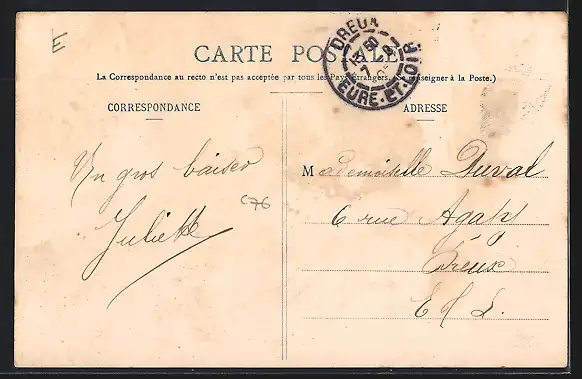 E
CARTE POSTALE
(La Correspondance au recto n'est pas acceptée par tous les Pays Étrangers. (Se renseigner à la Poste.)
CORRESPONDANCE
ADRESSE
DREUX
EURE-ET-LOIR
Un gros baiser
Juliette
C76
Mademoiselle Duval
6 rue
Dreux
E L